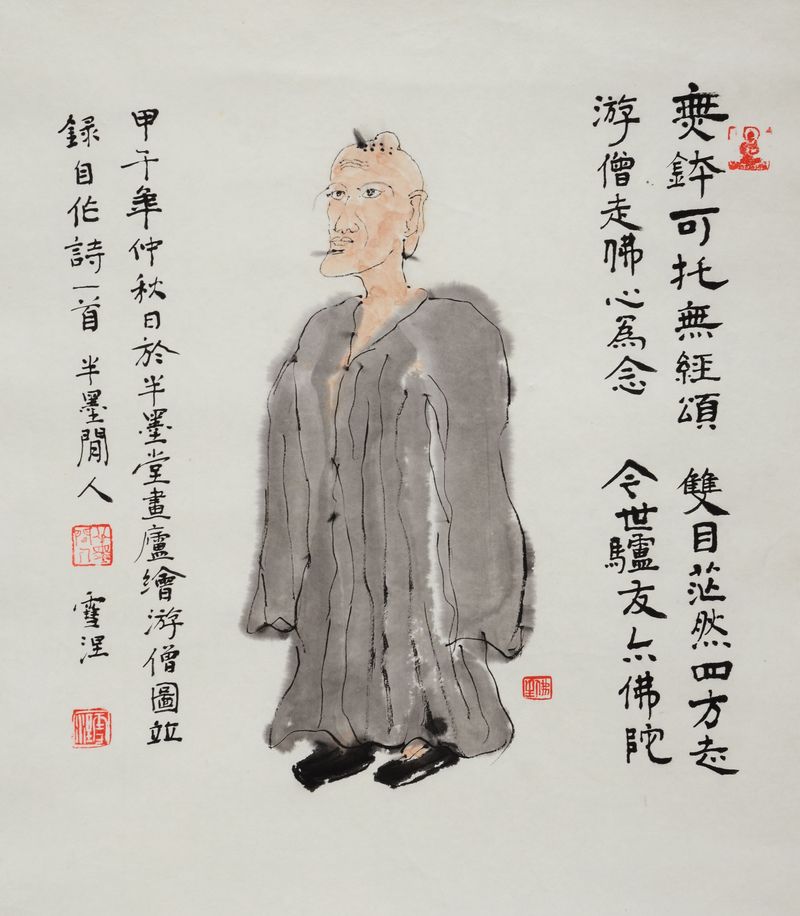 無鉢可托無經頌 雙目茫然四方志
游僧走佛心為念 今世驢友亦佛陀
甲午年仲秋日於半墨堂畫廬繪游僧圖並
錄自作詩一首 半墨閒人
雪涅